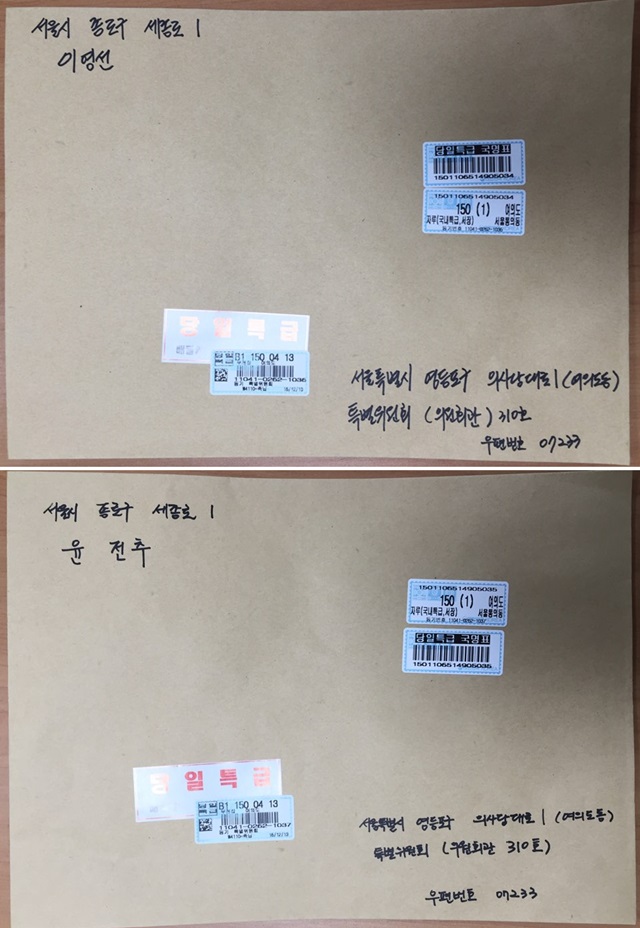 서울시 종로구 세종로 1
이영선
당일특급 국명표
1501106514905034
1501106514905034
150 (1) 여의도
자루(국내특급,서장) 서울통의동
등기번호 11041-0262-1036
당일특급
B1 150 04 13
11041-0262-1036
16/12/13
서울특별시 영등포구 의사당대로 1 (여의도동)
특별위원회 (의원회관) 310호
우편번호 07233
서울시 종로구 세종로 1
윤전추
1501106514905035
150 (1) 여의도
자루(국내특급,서장) 서울통의동
등기번호 11041-0262-1037
당일특급 국명표
1501106514905035
당일특급
B1 150 04 13
11041-0262-1037
16/12/13
서울특별시 영등포구 의사당대로 1 (여의도동)
특별위원회 (의원회관 310호)
우편번호 07233